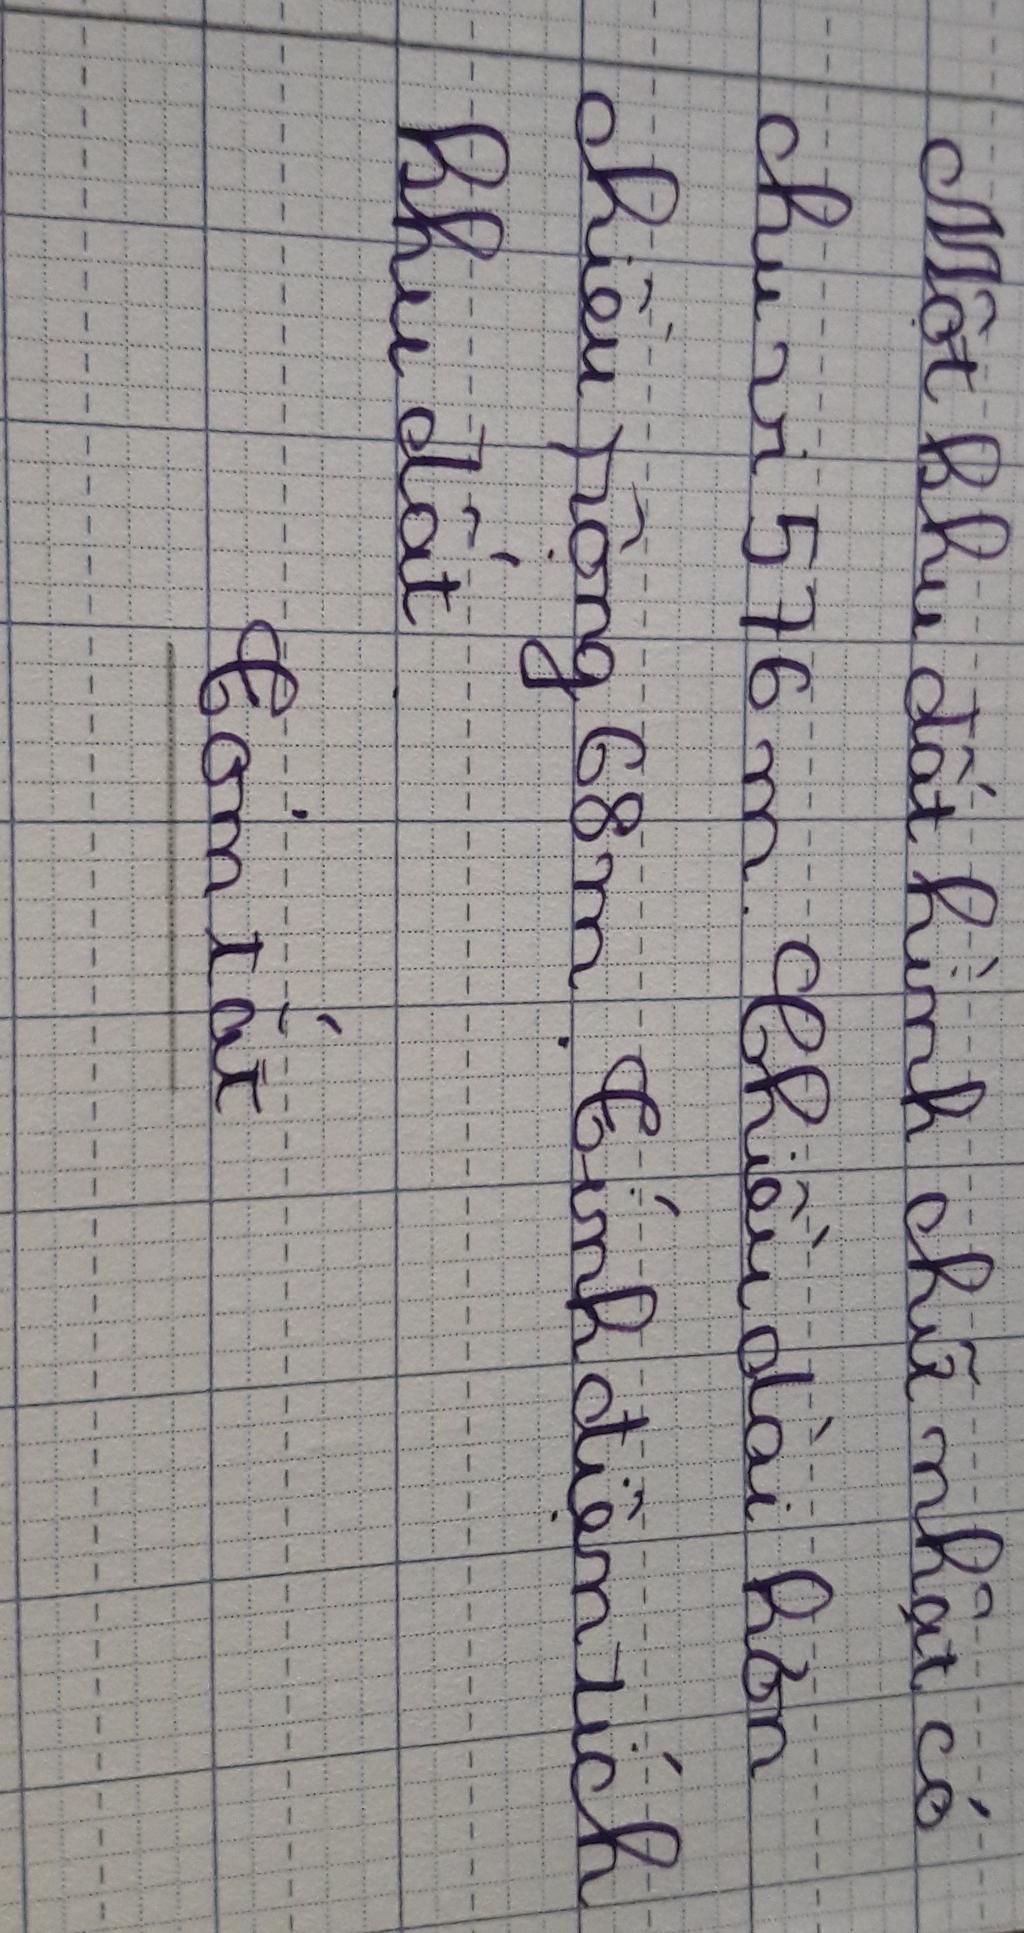 Một khu đất hình chữ nhật có
chu vi 576 m. Chiều dài hơn
chiều rộng 68m. Tính diện tích
khu đất
Tóm tắt